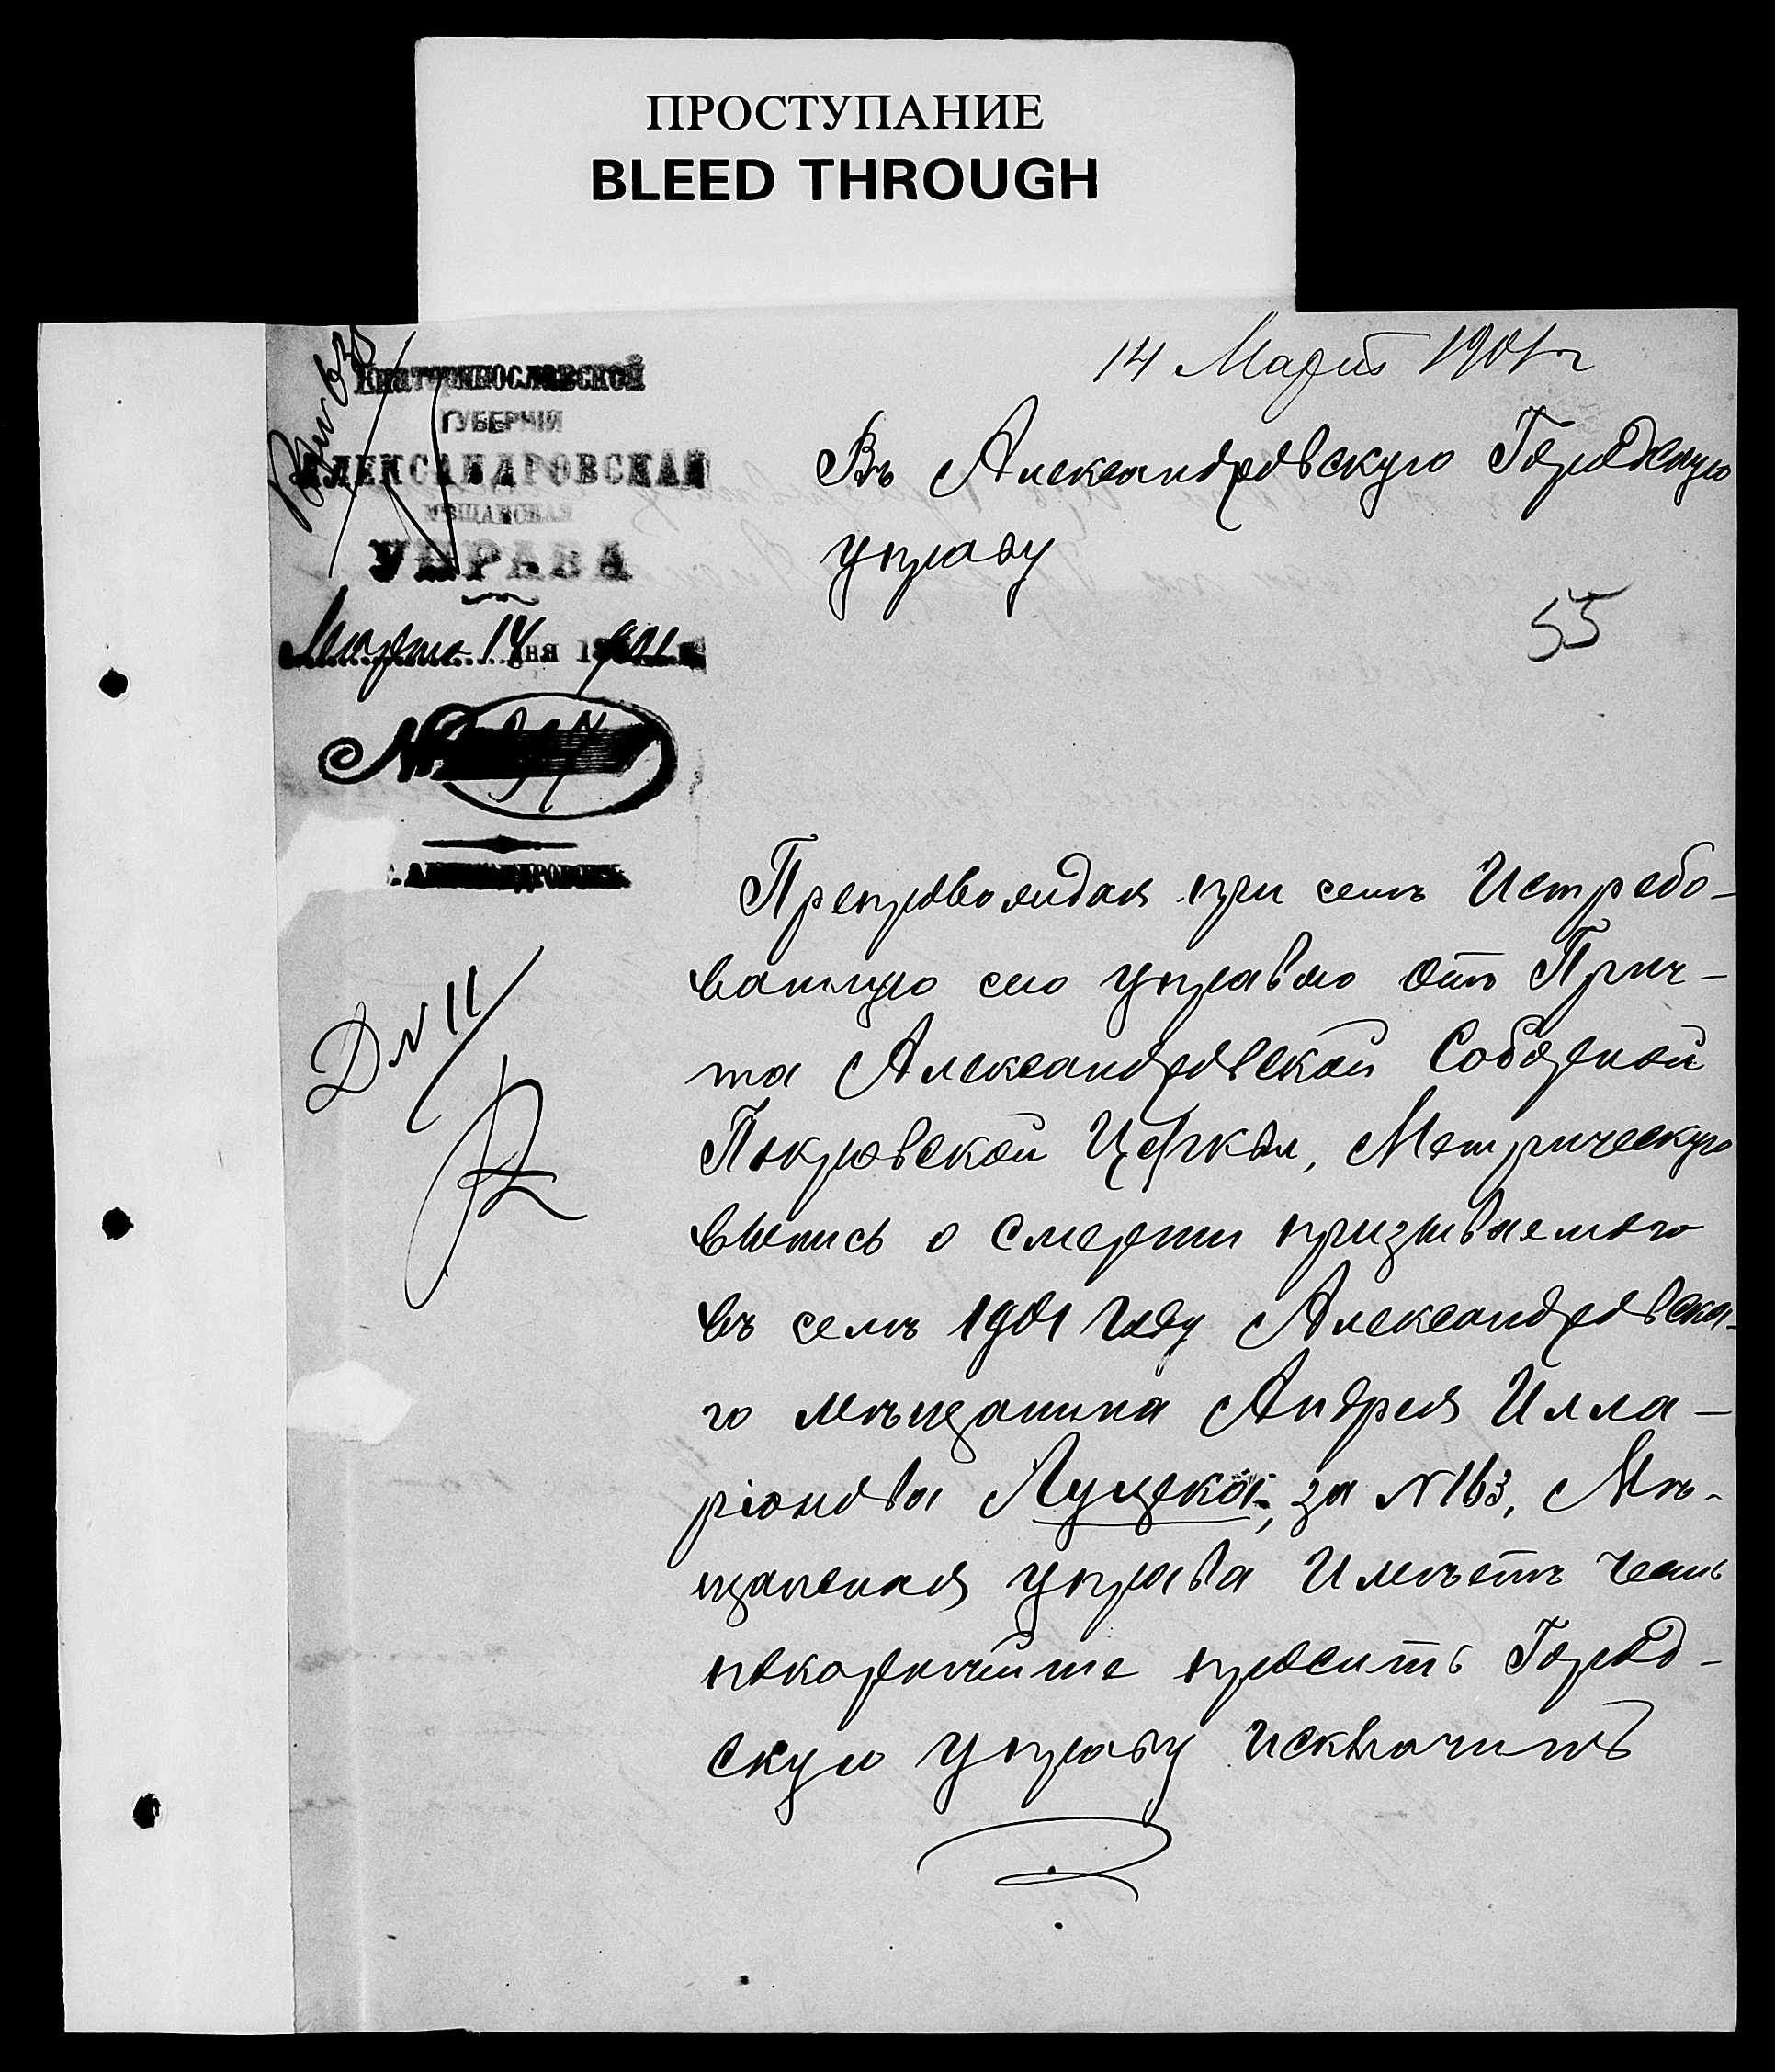 ПРОСТУПАНИЕ
BLEED THROUGH
14 Марта 1901 г
ЕКАТЕРИНОСЛАВСКОЙ
ГУБЕРНІИ
АЛЕКСАНДРОВСКАЯ
МѢЩАНСКАЯ
УПРАВА
Марта 14 дня 1901 г.
№
г. АЛЕКСАНДРОВСКЪ
Въ Александровскую Городскую
управу
55
Д № 11
Препровождая при семъ Истребо-
ванную сею управою отъ Прич-
та Александровской Соборной
Покровской Церкви, Метрическую
выпись о смерти призываемаго
въ семъ 1901 году Александровска-
го мѣщанина Андрея Илла-
ріонова Луцека, за № 163, Мѣ-
щанская управа Имѣетъ честь
покорнѣйше просить Город-
скую управу исключить